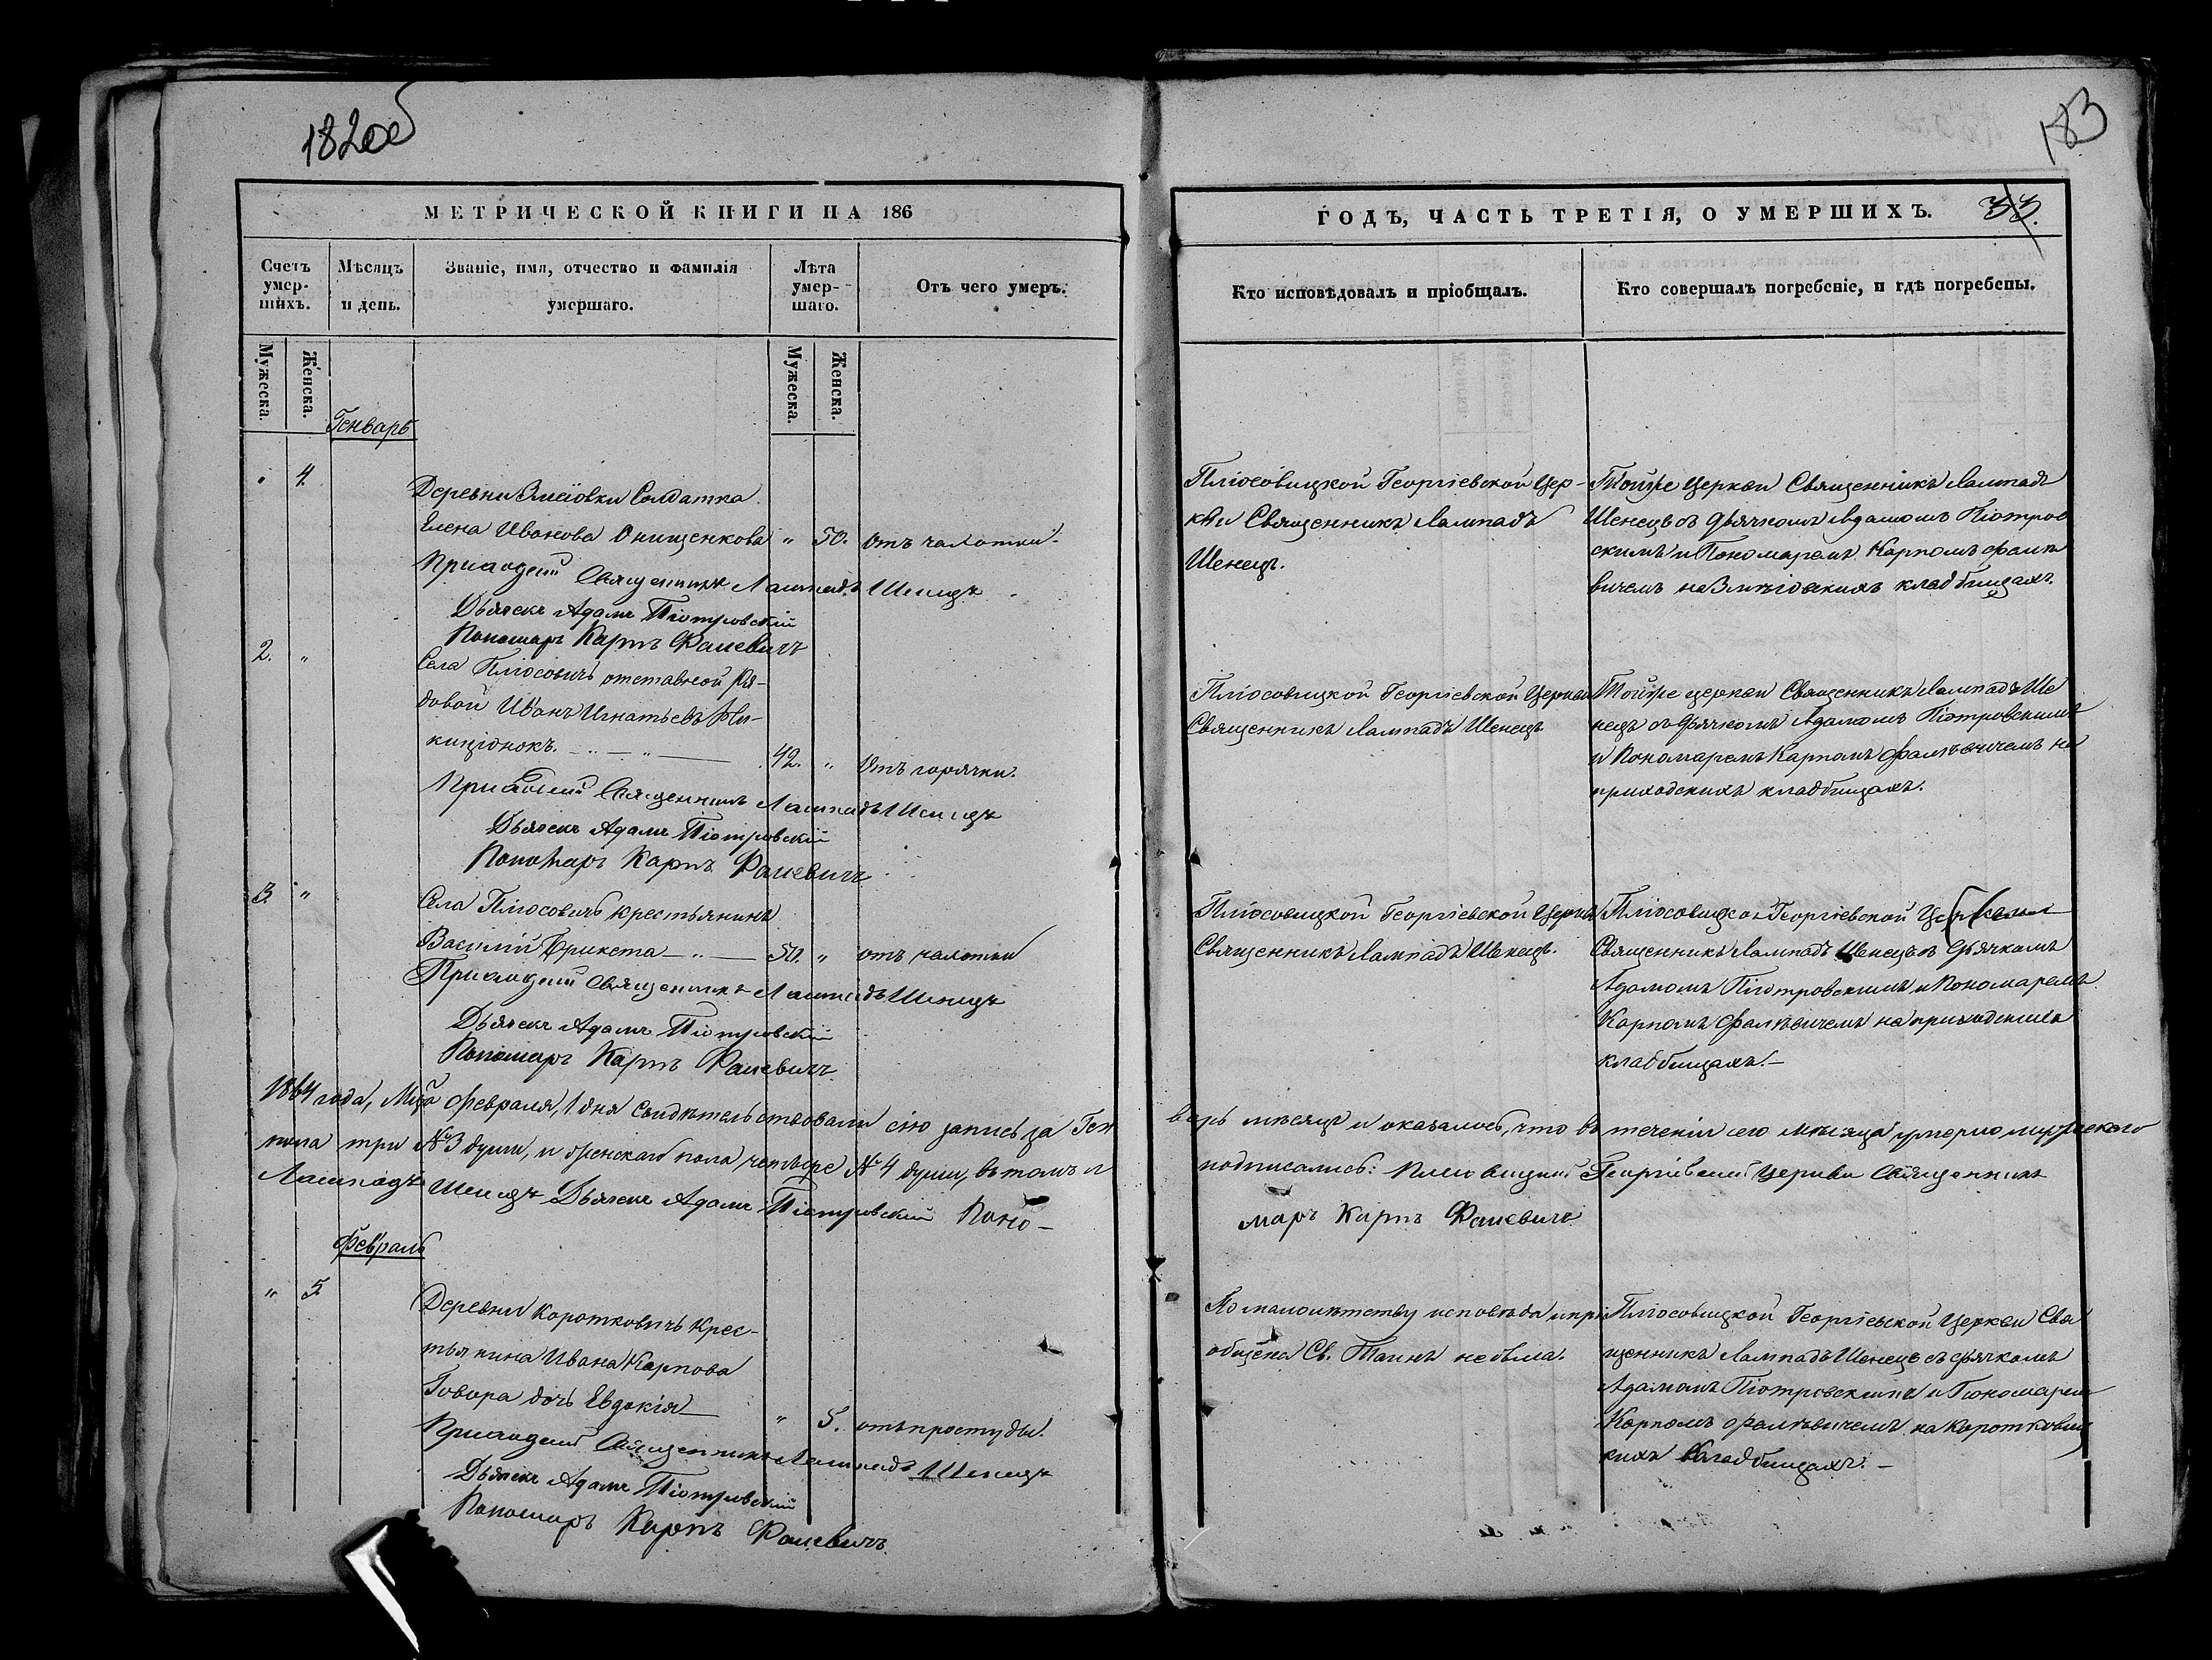 182об
183
МЕТРИЧЕСКОЙ КНИГИ НА 186
ГОДЪ, ЧАСТЬ ТРЕТІЯ, О УМЕРШИХЪ. 33.
Счетъ умер-шихъ.
Мѣсяцъ и день.
Званіе, имя, отчество и фамилія умершаго.
Лѣта умер-шаго.
Отъ чего умеръ.
Кто исповѣдовалъ и пріобщалъ.
Кто совершалъ погребеніе, и гдѣ погребены.
Мужеска.
Женска.
Мужеска.
Женска.
Генварь
4.
Деревни Змѣіовки Солдатка
Елена Иванова Онищенкова " 50. отъ чахотки.
Приходскій Священникъ Лампадъ Шенецъ
Дьячекъ Адамъ Піотровскій
Пономарь Карпъ Фалевичъ
Пліосовицкой Георгіевской Цер-
кви Священникъ Лампадъ
Шенецъ.
Тойже Церкви Священникъ Лампадъ
Шенецъ съ дьячкомъ Адамомъ Піотров
скимъ и Пономаремъ Карпомъ Фалѣ
вичемъ на Змѣіовскихъ кладбищахъ.
2. "
Села Пліосовичъ отставной Ря-
довой Иванъ Игнатьевъ
42. " Отъ горячки.
Приходскій Священникъ Лампадъ Шенецъ
Дьячекъ Адамъ Піотровскій
Пономарь Карпъ Фалевичъ
Пліосовицкой Георгіевской Церкви
Священникъ Лампадъ Шенецъ.
Тойже церкви Священникъ Лампадъ Ше
нецъ съ дьячкомъ Адамомъ Піотровскимъ
и Пономаремъ Карпомъ Фалѣвичемъ на
приходскихъ кладбищахъ.
3. "
Села Пліосовичъ крестьянинъ
Василій Брикета 50. " отъ чахотки
Приходскій Священникъ Лампадъ Шенецъ
Дьячекъ Адамъ Піотровскій
Пономарь Карпъ Фалевичъ
Пліосовицкой Георгіевской Церкви
Священникъ Лампадъ Шенецъ.
Пліосовицкой Георгіевской Церкви
Священникъ Лампадъ Шенецъ съ дьячкомъ
Адамомъ Піотровскимъ и Пономаремъ
Карпомъ Фалѣвичемъ на приходскихъ
кладбищахъ.
1864 года, Мца Февраля, 1 дня свидѣтельствовали сію запись за Ген
варь мѣсяцъ и оказалось, что въ теченіи сего мѣсяца умерло мужескаго
пола три №3 души, и женскаго пола четыре №4 души, въ томъ и
подписались: Георгіевской Церкви Священникъ
Лампадъ Шенецъ Дьячекъ Адамъ Піотровскій Поно-
марь Карпъ Фалевичъ
Февраль
" 5.
Деревни Коротковичъ Крес-
тьянина Ивана Карпова
Говора дочь Евдокія " 5. отъ простуды.
Приходскій Священникъ Лампадъ Шенецъ
Дьячекъ Адамъ Піотровскій
Пономарь Карпъ Фалевичъ
По малолѣтству исповѣдана и прі
общена Св. Таинъ не была.
Пліосовицкой Георгіевской Церкви Свя
щенникъ Лампадъ Шенецъ съ дьячкомъ
Адамомъ Піотровскимъ и Пономаремъ
Карпомъ Фалѣвичемъ на Коротковиц
кихъ кладбищахъ.